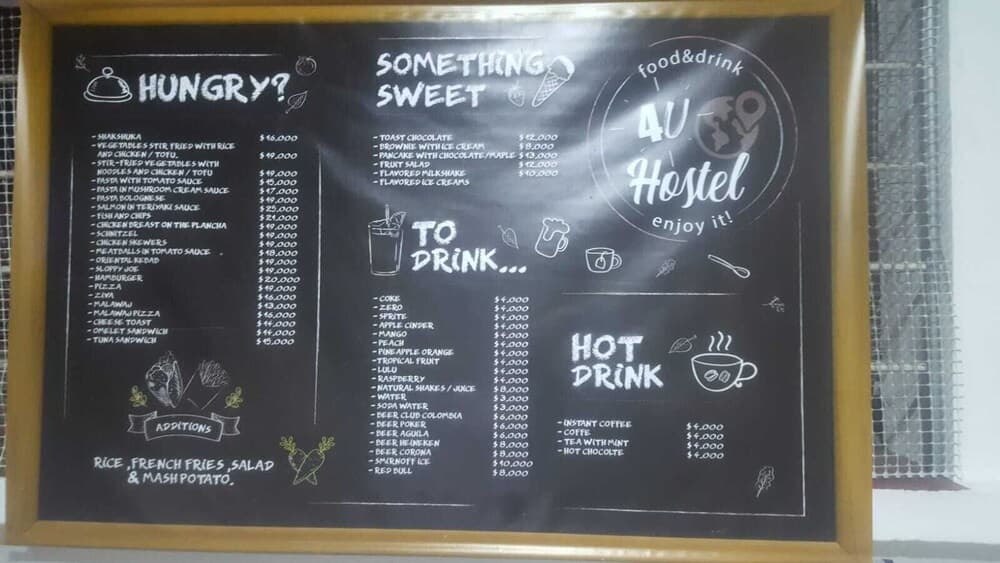 HUNGRY?
- SHAKSHUKA $16,000
- VEGETABLES STIR FRIED WITH RICE
AND CHICKEN / TOFU. $19,000
- STIR-FRIED VEGETABLES WITH
NOODLES AND CHICKEN / TOFU $19,000
- PASTA WITH TOMATO SAUCE $15,000
- PASTA IN MUSHROOM CREAM SAUCE $17,000
- PASTA BOLOGNESE $19,000
- SALMON IN TERIYAKI SAUCE $25,000
- FISH AND CHIPS $21,000
- CHICKEN BREAST ON THE PLANCHA $19,000
- SCHNITZEL $19,000
- CHICKEN SKEWERS $19,000
- MEATBALLS IN TOMATO SAUCE . $18,000
- ORIENTAL KEBAB $19,000
- SLOPPY JOE $19,000
- HAMBURGER $20,000
- PIZZA $19,000
- ZIVA $16,000
- MALAWAJ $13,000
- MALAWAJ PIZZA $16,000
- CHEESE TOAST $14,000
- OMELET SANDWICH $14,000
- TUNA SANDWICH $15,000
ADDITIONS
RICE ,FRENCH FRIES ,SALAD
& MASHPOTATO.
SOMETHING
SWEET
- TOAST CHOCOLATE $12,000
- BROWNIE WITH ICE CREAM $8,000
- PANCAKE WITH CHOCOLATE/MAPLE $13,000
- FRUIT SALAD $12,000
- FLAVORED MILKSHAKE $10,000
- FLAVORED ICE CREAMS
TO
DRINK...
- COKE $4,000
- ZERO $4,000
- SPRITE $4,000
- APPLE CINDER $4,000
- MANGO $4,000
- PEACH $4,000
- PINEAPPLE ORANGE $4,000
- TROPICAL FRUIT $4,000
- LULU $4,000
- RASPBERRY $4,000
- NATURAL SHAKES / JUICE $8,000
- WATER $3,000
- SODA WATER $3,000
- BEER CLUB COLOMBIA $6,000
- BEER POKER $6,000
- BEER AGUILA $6,000
- BEER HEINEKEN $8,000
- BEER CORONA $8,000
- SMIRNOFF ICE $10,000
- RED BULL $8,000
food&drink
4U
Hostel
enjoy it!
HOT
DRINK
- INSTANT COFFEE $4,000
- COFFE $4,000
- TEA WITH MINT $4,000
- HOT CHOCOLTE $4,000